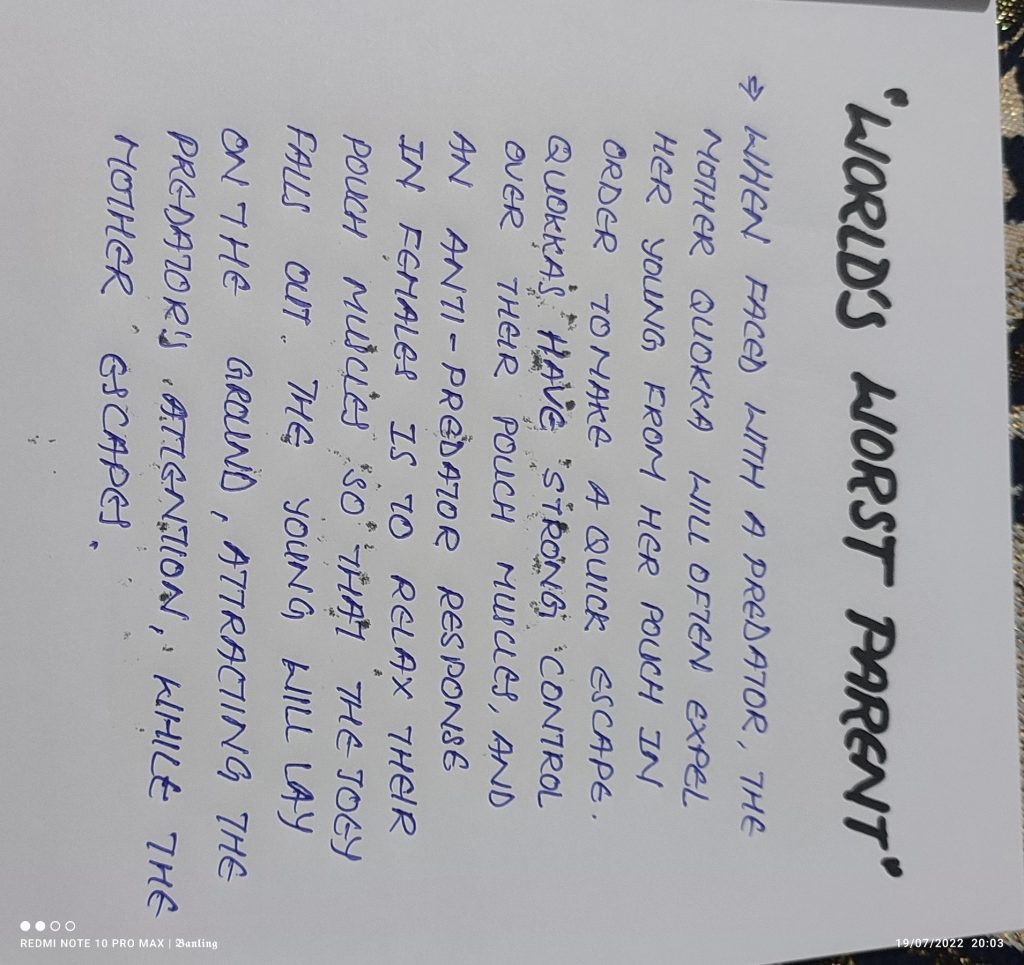 "WORLD'S WORST PARENT"
⇒ WHEN FACED WITH A PREDATOR, THE
MOTHER QUOKKA WILL OFTEN EXPEL
HER YOUNG FROM HER POUCH IN
ORDER TO MAKE A QUICK ESCAPE.
QUOKKAS HAVE STRONG CONTROL
OVER THEIR POUCH MUSCLES, AND
AN ANTI-PREDATOR RESPONSE
IN FEMALES IS TO RELAX THEIR
POUCH MUSCLES SO THAT THE JOEY
FALLS OUT. THE YOUNG WILL LAY
ON THE GROUND, ATTRACTING THE
PREDATOR'S ATTENTION, WHILE THE
MOTHER ESCAPES.
REDMI NOTE 10 PRO MAX | Banling
19/07/2022 20:03